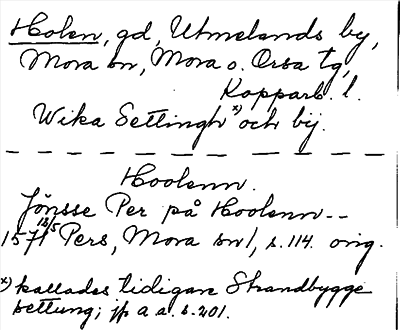 Holen, gd, Utmelands by,
Mora sn, Mora o. Orsa tg,
Kopparb. l.
Wika Settingh x) och bij.
Hoolenn.
Jönsse Per på Hoolenn--
1571 12/5 Pers, Mora sn 1, s. 114. orig.
x) kallades tidigare Strandbygge
settung; jfr a a. s. 201.